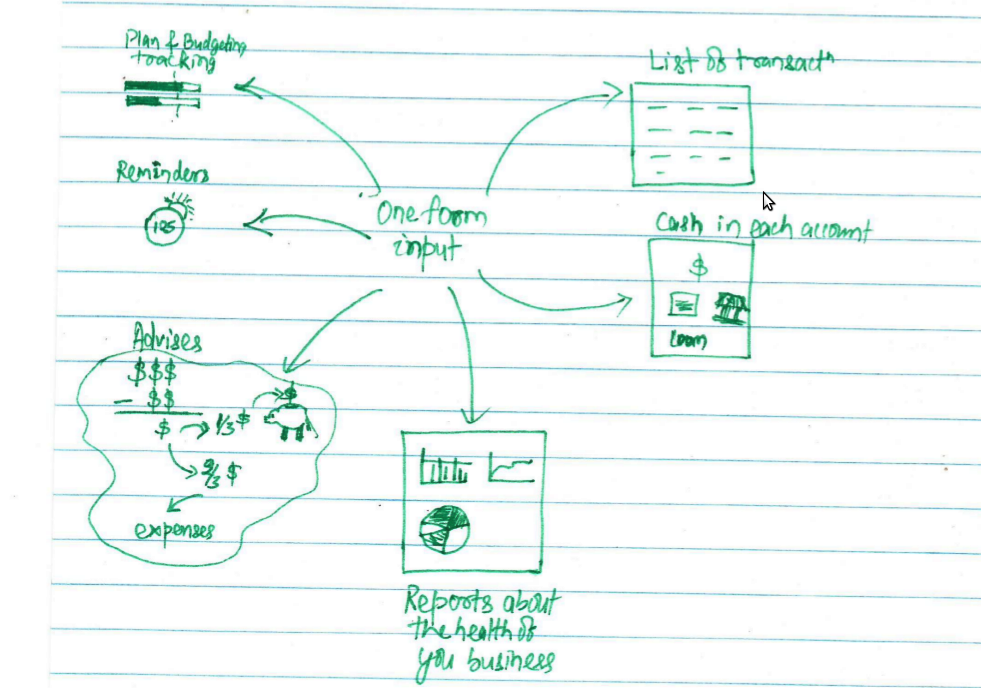 Plan & Budgeting
tracking
List of transactn
Reminders
185
One form
input
Cash in each account
$
Loan
Advises
$$$
- $$
$
1/3 $
$
2/3 $
expenses
Reports about
the health of
you business